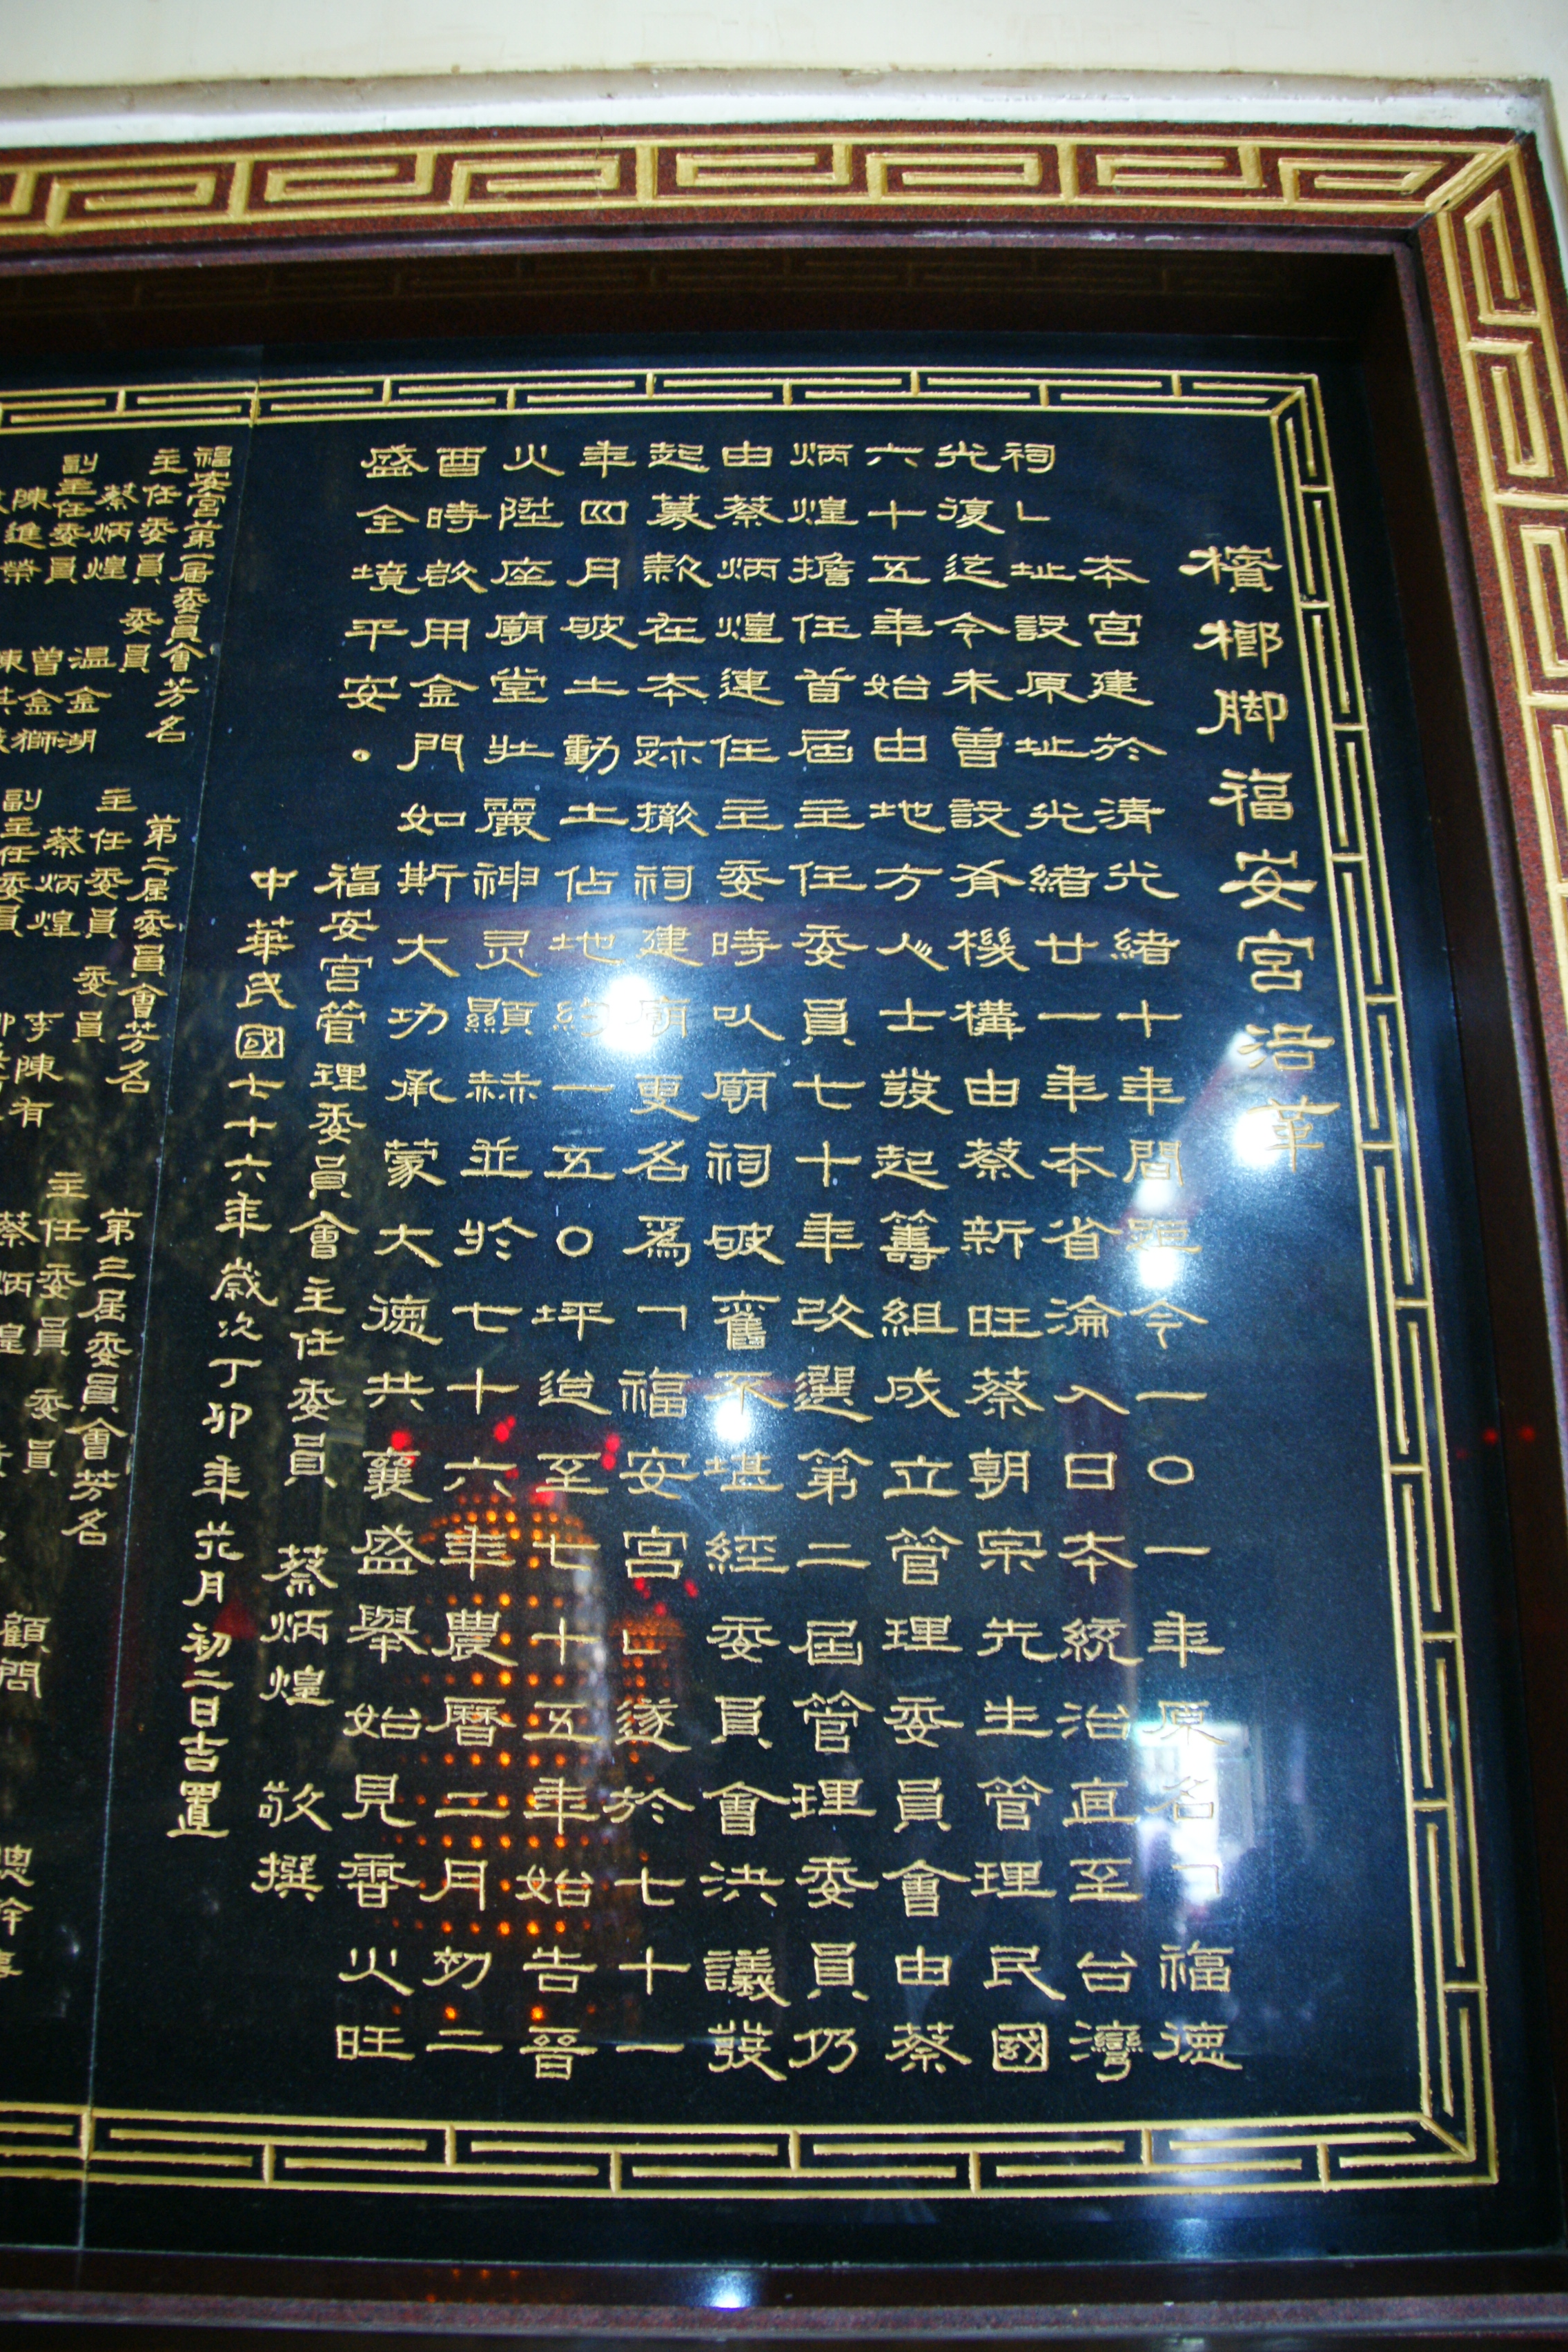 檳榔脚福安宮沿革
本宮建於清光緒十年間距今一〇一年原名「福德
祠」址設原址光緒廿一年本省淪入日本統治直至台灣
光復迄今未曾設有機構由蔡新旺蔡朝宗先生管理民國
六十五年始由地方人士發起籌組成立管理委員會由蔡
炳煌擔任首屆主任委員七十年改選第二屆管理委員仍
由蔡炳煌連任主委時以廟祠破舊不堪經委員會決議發
起募款在本跡撤祠建廟更名為「福安宮」遂於七十一
年四月破土動土佔地約一五〇坪迨至七十五年始告晉
火陞座廟堂壯麗神灵顯赫並於七十六年農曆二月初二
酉時啟用金門如斯大功承蒙大德共襄盛舉始見香火旺
盛全境平安。
福安宮管理委員會主任委員 蔡炳煌 敬撰
中華民國七十六年歲次丁卯年花月初二日吉置
福安宮第一届委員會芳名
主任委員 委員
蔡炳煌 溫金湖
副主任委員 曾金獅
陳進榮
第二届委員會芳名
主任委員 委員
蔡炳煌 李陳有
副主任委員
第三届委員會芳名
主任委員 委員
蔡炳煌
顧問
總幹事